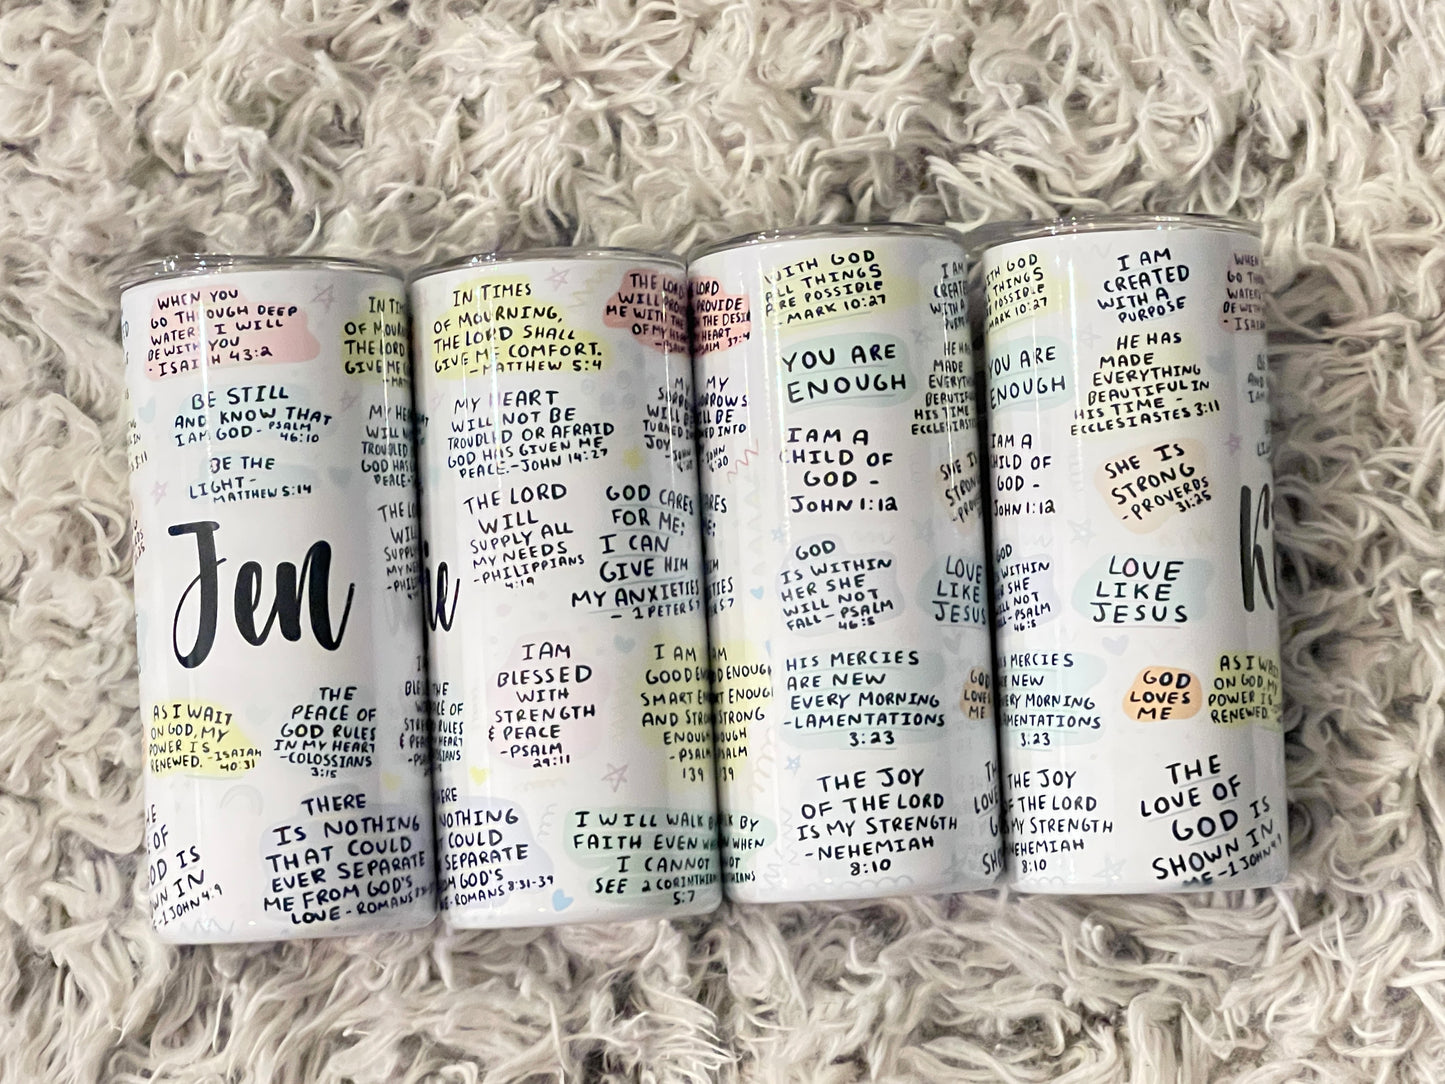 WHEN YOU
GO THROUGH DEEP
WATERS I WILL
BE WITH YOU
- ISAIAH 43:2
BE STILL
AND KNOW THAT
I AM GOD - PSALM
46:10
BE THE
LIGHT -
MATTHEW 5:14
Jen
AS I WAIT
ON GOD, MY
POWER IS
RENEWED. - ISAIAH
40:31
THE
PEACE OF
GOD RULES
IN MY HEART
- COLOSSIANS
3:15
THERE
IS NOTHING
THAT COULD
EVER SEPARATE
ME FROM GOD'S
LOVE - ROMANS
OD IS
WN IN
- 1 JOHN 4:9
IN TIMES
OF MOURNING,
THE LORD SHALL
GIVE ME COMFORT.
- MATTHEW 5:4
THE LORD
WILL PROVIDE
ME WITH THE
OF MY
MY HEART
WILL NOT BE
TROUBLED OR AFRAID
GOD HAS GIVEN ME
PEACE. - JOHN 14:27
THE LORD
WILL
SUPPLY ALL
MY NEEDS
- PHILIPPIANS
4:19
GOD CARES
FOR ME:
I CAN
GIVE HIM
MY ANXIETIES
- 1 PETER 5:7
ie
I AM
BLESSED
WITH
STRENGTH
& PEACE
- PSALM
29:11
I AM
GOOD ENOUGH
SMART ENOUGH
AND STRONG
ENOUGH
- PSALM
139
NOTHING
COULD
SEPARATE
GOD'S
- ROMANS 8:31-39
I WILL WALK BY
FAITH EVEN WHEN
I CANNOT
SEE 2 CORINTHIANS
5:7
LORD
PROVIDE
THE DESIRES
HEART
PSALM 37:4
WITH GOD
ALL THINGS
ARE POSSIBLE
- MARK 10:27
YOU ARE
ENOUGH
I AM A
CHILD OF
GOD -
JOHN 1:12
GOD
IS WITHIN
HER SHE
WILL NOT
FALL - PSALM
46:5
LOVE
LIKE
JESUS
HIS MERCIES
ARE NEW
EVERY MORNING
- LAMENTATIONS
3:23
GOD
LOVES
ME
THE JOY
OF THE LORD
IS MY STRENGTH
- NEHEMIAH
8:10
WITH GOD
THINGS
POSSIBLE
MARK 10:27
YOU ARE
ENOUGH
I AM A
CHILD OF
GOD -
JOHN 1:12
GOD
WITHIN
SHE
NOT
- PSALM
46:5
MERCIES
NEW
EVERY MORNING
LAMENTATIONS
3:23
THE JOY
OF THE LORD
IS MY STRENGTH
NEHEMIAH
8:10
I AM
CREATED
WITH A
PURPOSE
HE HAS
MADE
EVERYTHING
BEAUTIFUL IN
HIS TIME -
ECCLESIASTES 3:11
SHE IS
STRONG
- PROVERBS
31:25
LOVE
LIKE
JESUS
GOD
LOVES
ME
AS I WAIT
ON GOD, MY
POWER IS
RENEWED.
THE
LOVE OF
GOD IS
SHOWN IN
ME - 1 JOHN 4:9